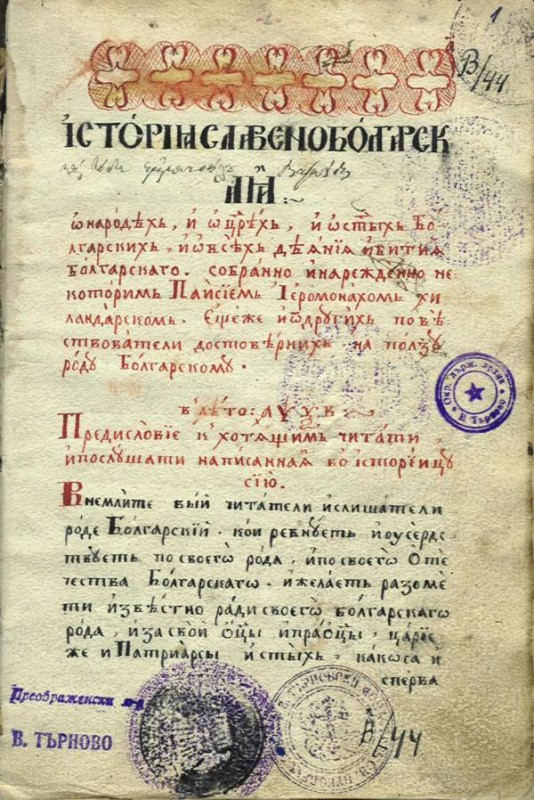 1
В/44
ІСТОРІꙖ СЛАВЕНОБОЛГАРСК
АꙖ :~
ѡ народѣхъ, и ѡ цр҃ехъ, и ѡ ст҃ыхъ бо
лгарскихъ, и ѡ всѣхъ дѣѧнїѧ и битиѧ
болгарскаго. собранно и нарежденно не
которимъ Паисїемъ Їеромонахомъ хи
ландарскомъ. Еще же и ѿ другихъ повѣ
ствователи достовѣрнихъ на ползу
роду Болгарскому :~
в лѣто : ҂АѰѮВ
Предисловїе к хотѧщимъ читати,
и послушати написанная во исторїи цу
сїю.
Внемлите вый читатели и слишатели
роде Болгарскїй. кои ревнуетъ и оусердс
твуетъ по своего рода, и по своего Оте
чества Болгарскагѡ. и желаетъ разоме
ти извѣстно ради своегѡ болгарскагѡ
рода, и за свой ѻц҃ы и праѻц҃ы, царїе
же и Патриарсы и ст҃ыхъ, какоса и
сперва
Преображенски м-р
В. ТЪРНОВО
В/44